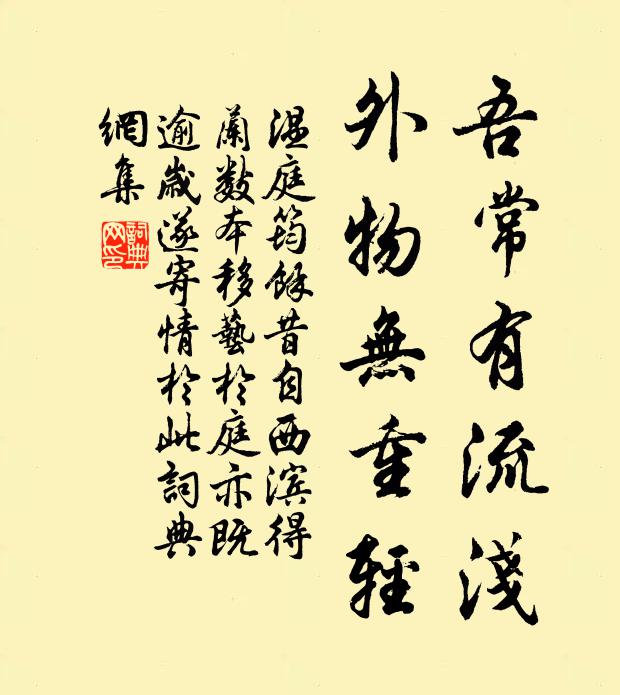 吾常有流淺
外物無重輕
温庭筠餘昔自西滨得
蘭數本移藝於庭亦既
逾歲遂寄情於此詞典
網集
詞典
网印